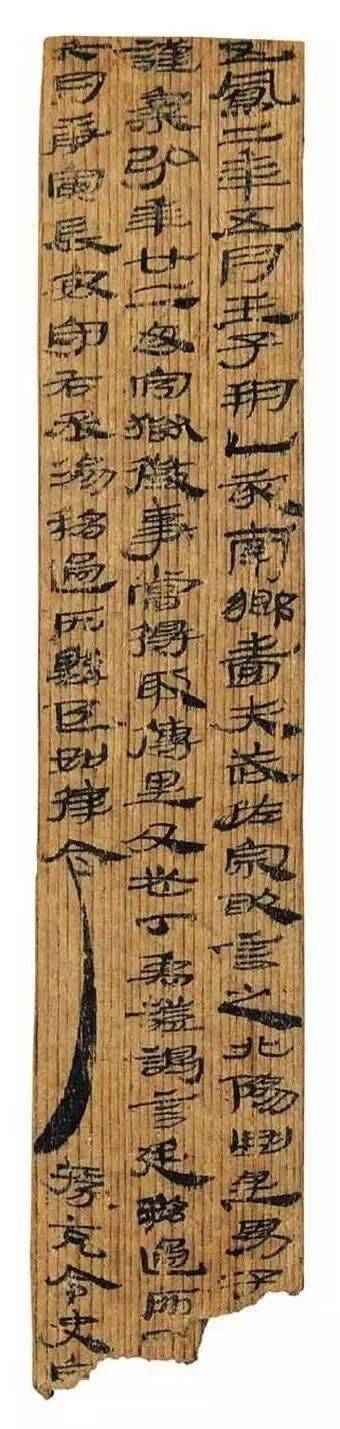 五鳳二年五月壬子朔乙亥南鄉嗇夫武佐宗敢言之北陽曲里男子
謹案弘年廿二毋官獄徵事當得取傳里父老丁禹證謁言廷移過所
六月庚寅長安守右丞湯移過所縣邑如律令 掾充令史